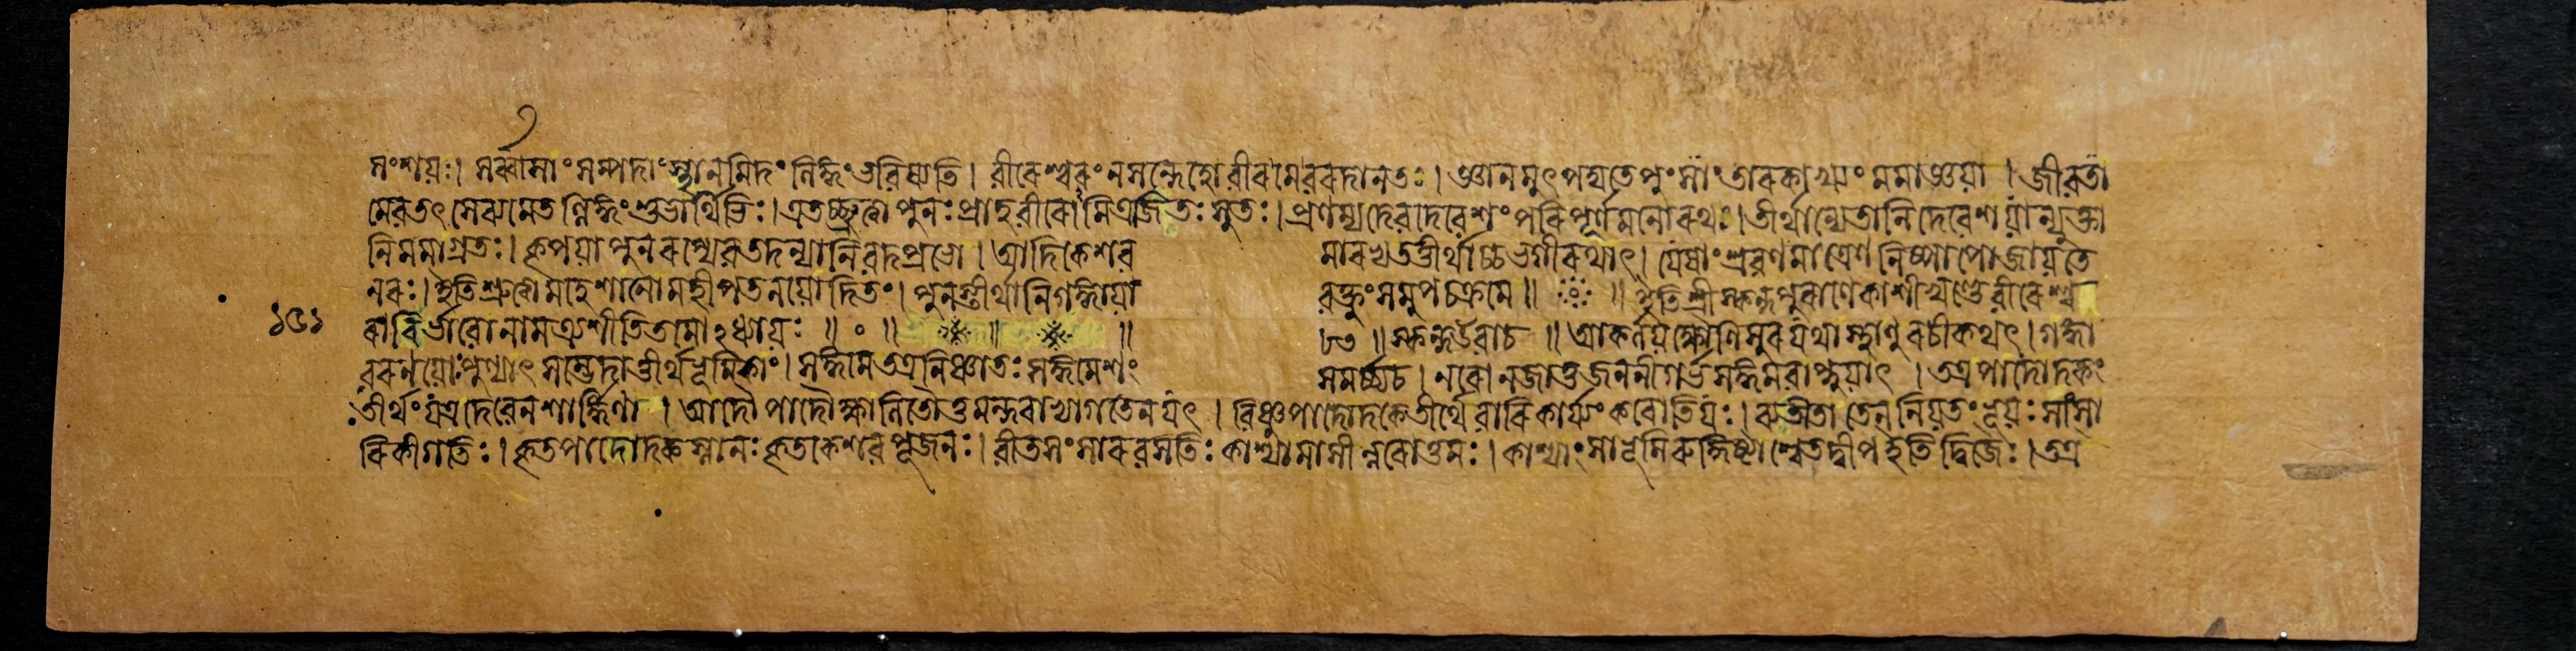 সংশয়ঃ। সর্ব্বাসাং সম্পদাং স্থানমিদং লিঙ্গং ভবিষ্যতি। বীরেশ্বরং ন সন্দেহো বীরমেবরদানতঃ। জ্ঞানমুৎপদ্যতে পুংসাং তারকাখ্যং মমাজ্ঞয়া। জীবতাং
মেবতৎ সেব্যমেত ল্লিঙ্গং শুভার্থিভিঃ। এতচ্ছ্রুত্বা পুনঃ প্রাহ বীরো মিত্রজিতঃ সুতঃ। প্রণম্য দেবদেবেশং পরিপূর্ণমনোরথঃ। তীর্থান্যেতানি দেবেশ যান্যুক্তা
নি মমাগ্রতঃ। কৃপয়া পুনরপ্যেব তদন্যানি বদ প্রভো। আদিকেশব মারভ্য তত্তীর্থাচ্চ ভগীরথাৎ। যেষাং শ্রবণমাত্রেণ নিষ্পাপো জায়তে
নরঃ। ইতি শ্রুত্বা মহেশানো মহীপতনয়োদিতং। পুনস্তীর্থানি গঙ্গায়া বক্তুং সমুপচক্রমে॥ ॥ ইতি শ্রীস্কন্দপুরাণে কাশীখণ্ডে বীরেশ্ব
রাবির্ভাবো নাম ত্র্যশীতিতমোঽধ্যায়ঃ ॥ ০ ॥ ॥ ॥ ৮৩ ॥ স্কন্দউবাচ ॥ আকর্ণয় ক্ষোণিসুর যথা স্থাণুরচীকথৎ। গঙ্গা
১৫১
বরণয়োঃ পুণ্যাৎ সম্ভেদাত্তীর্থভূমিকাং। সঙ্গমে তত্র নিষ্ণাতঃ সঙ্গমেশং সমর্চ্চ্য চ। নরো ন জাতু জননীগর্ভসঙ্গমবাপ্নুয়াৎ। তত্র পাদোদকং
তীর্থং যত্র দেবেন শার্ঙ্গিণা। আদৌ পাদৌ ক্ষালিতৌ তু মন্দরাখ্যাগতেন যৎ। বিষ্ণুপাদোদকে তীর্থে বারিকার্য্যং করোতি যঃ। ব্যতীতা তেন নিয়তং ভূয়ঃ সাংসা
রিকী গতিঃ। কৃতপাদোদকস্নানঃ কৃতকেশবপূজনঃ। বীতসংসারবসতিঃ কাশ্যামাসীন্নরোত্তমঃ। কাশ্যাং সা ভূমিরুদ্দিষ্টা শ্বেতদ্বীপ ইতি দ্বিজৈঃ। তত্র